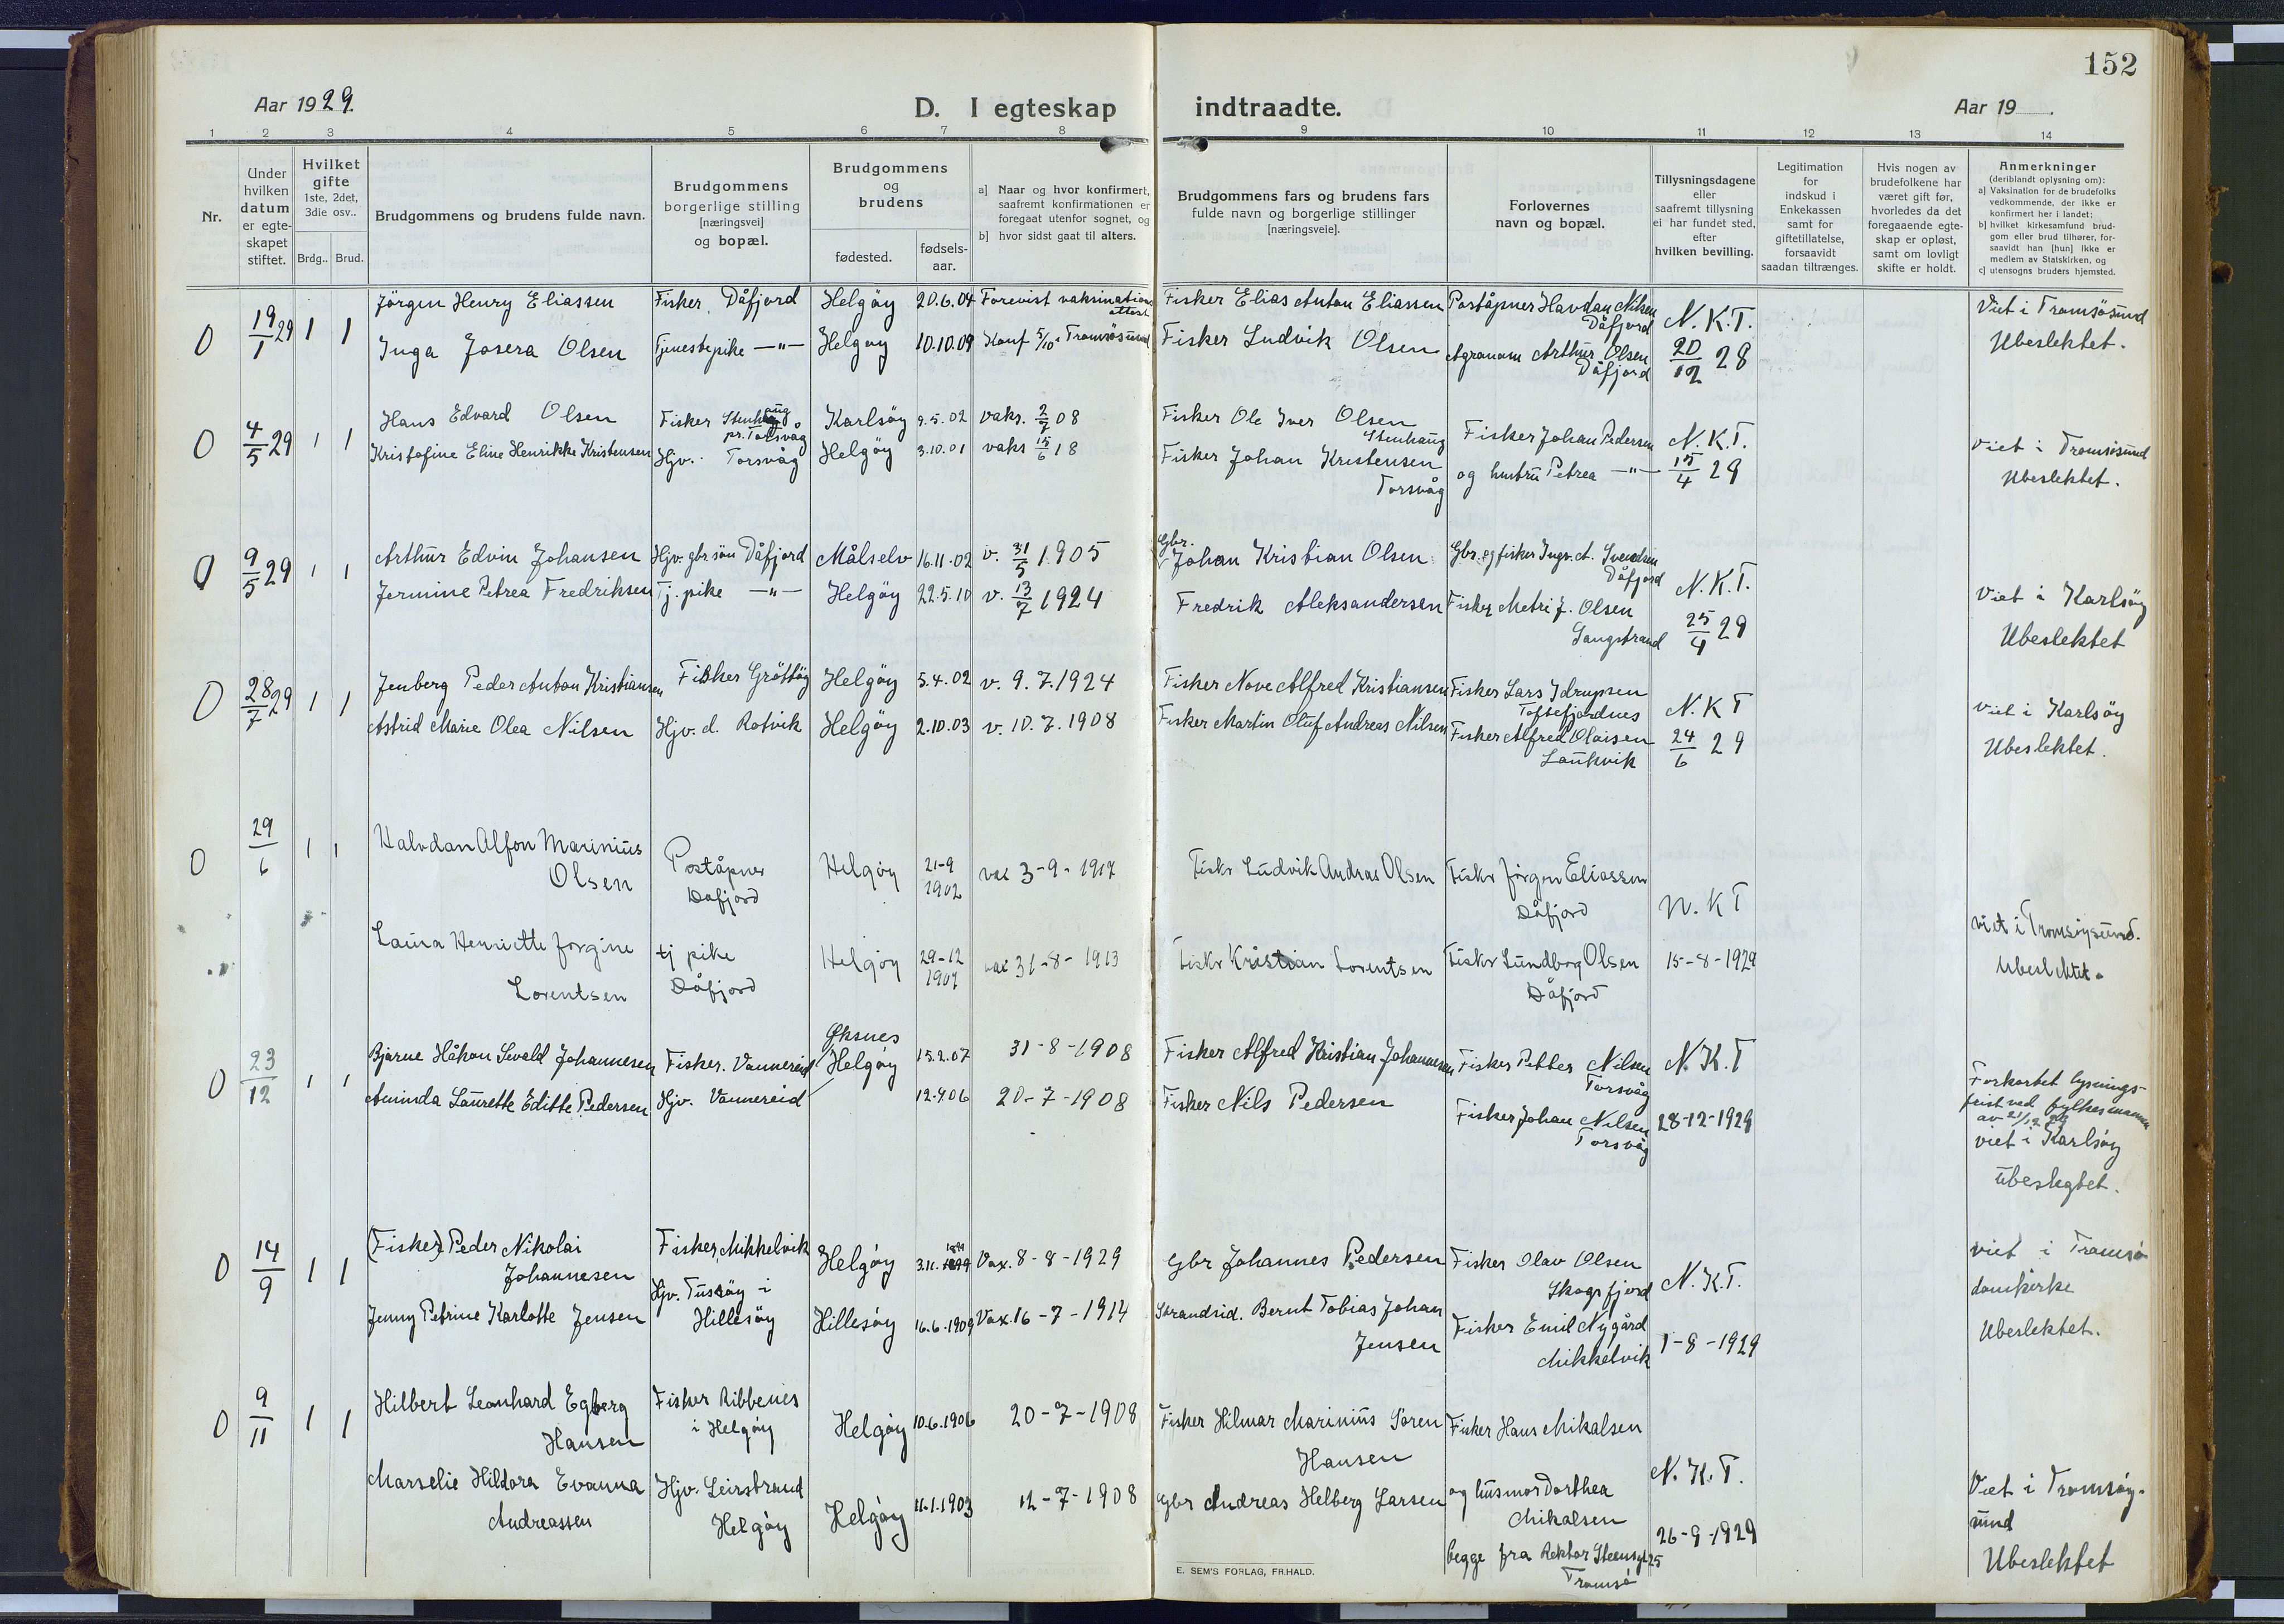 152
Aar 1929.
D. I egteskap indtraadte.
Aar 19
1 2 3 4 5 6 7 8 9 10 11 12 13 14
Nr.
Under hvilken datum er egteskapet stiftet.
Hvilket gifte 1ste, 2det, 3die osv..
Brdg.. Brud.
Brudgommens og brudens fulde navn.
Brudgommens borgerlige stilling [næringsvei] og bopæl.
Brudgommens og brudens
fødested.
fødsels-aar.
a] Naar og hvor konfirmert, saafremt konfirmationen er foregaat utenfor sognet, og
b] hvor sidst gaat til alters.
Brudgommens fars og brudens fars fulde navn og borgerlige stillinger [næringsveie].
Forlovernes navn og bopæl.
Tillysningsdagene eller saafremt tillysning ei har fundet sted, efter hvilken bevilling.
Legitimation for indskud i Enkekassen samt for giftetillatelse, forsaavidt saadan tiltrænges.
Hvis nogen av brudefolkene har været gift før, hvorledes da det foregaaende egteskap er opløst, samt om lovligt skifte er holdt.
Anmerkninger (deriblandt oplysning om):
a] Vaksination for de brudefolks vedkommende, der ikke er konfirmert her i landet;
b] hvilket kirkesamfund brudgom eller brud tilhører, forsaavidt han [hun] ikke er medlem av Statskirken, og
c] utensogns bruders hjemsted.
0 19/1 29 1 1 Jörgen Henry Eliassen Fisker, Dåfjord Helgöy 20.6.04 Forevist vaksinations attest Fisker Elias Anton Eliassen Poståpner Havdan Nilsen Dåfjord N.K.T. Viet i Tromsösund
Inga Josera Olsen Tjenestepike —"— Helgöy 10.10.09 Konf 5/10 i Tromsösund Fisker Ludvik Olsen Agronom Arthur Olsen Dåfjord 20/12 28 Ubeslektet.
0 4/5 29 1 1 Hans Edvard Olsen Fisker Stenhaug pr. Torsvåg Karlsöy 9.5.02 vaks. 2/7 08 Fisker Ole Iver Olsen Stenhaug Fisker Johan Pedersen N.K.T. Viet i Tromsösund
Kristofine Eline Henrikke Kristensen Hjv. Torsvåg Helgöy 3.10.01 vaks 15/6 18 Fisker Johan Kristensen Torsvåg og hustru Petrea —"— 15/4 29 Ubeslektet.
0 9/5 29 1 1 Arthur Edvin Johansen Hjv. gbr.sön Dåfjord Målselv 16.11.02 v. 31/5 1905 Gbr. Johan Kristian Olsen Gbr. og fisker Ingv. A. Svendsen Dåfjord N.K.T. Viet i Karlsöy
Jermine Petrea Fredriksen Tj. pike —"— Helgöy 22.5.10 v. 13/7 1924 Fredrik Aleksandersen Fisker Metri J. Olsen Langstrand 25/4 29 Ubeslektet
0 28/7 29 1 1 Jenberg Peder Anton Kristiansen Fisker Gröttöy Helgöy 5.4.02 v. 9.7.1924 Fisker Nove Alfred Kristiansen Fisker Lars Idrupsen Toftefjordnes N.K.T Viet i Karlsöy
Astrid Marie Olea Nilsen Hjv. d. Rotvik Helgöy 2.10.03 v. 10.7.1908 Fisker Martin Oluf Andreas Nilsen Fisker Alfred Olaisen Laukvik 24/6 29 Ubeslektet.
0 29/6 1 1 Halvdan Alfon Marinius Olsen Poståpner Dåfjord Helgöy 21-9 1902 vac 3-9-1917 Fisker Ludvik Andreas Olsen Fisker Jörgen Eliassen Dåfjord N.K.T
Laura Henriette Jorgine Lorentsen tj pike Dåfjord Helgöy 29-12 1907 vac 31-8-1913 Fisker Kristian Lorentsen Fisker Lundborg Olsen Dåfjord 15-8-1929 viet i Tromsöysund. Ubeslektet.
0 23/12 1 1 Bjarne Håkon Sevald Johannesen Fisker. Vannereid Øksnes Helgöy 15.2.07 31-8-1908 Fisker Alfred Kristian Johannesen Fisker Petter Nilsen Torsvåg N.K.T
Aminda Laurette Editte Pedersen Hjv. Vannereid 12.4.06 20-7-1908 Fisker Nils Pedersen Fisker Johan Nilsen Torsvåg 28-12-1929 Forkortet lysnings-
frist ved fylkesmannen
av 21/12 29
viet i Karlsöy
ubeslegtet.
0 14/9 1 1 (Fisker) Peder Nikolai Johannesen Fisker Mikkelvik Helgöy 3.11. Vax. 8-8-1929 Gbr Johannes Pedersen Fisker Olav Olsen Skogsfjord N.K.T. viet i Tromsö
domkirke
Jenny Petrine Karlotte Jensen Hjv. Tussöy i Hillesöy Hillesöy 16.6.1909 Vax. 16-7-1914 Strandsid. Bernt Tobias Johan Jensen Fisker Emil Nygård Mikkelvik 1-8-1929 Ubeslektet.
0 9/11 1 1 Hilbert Leonhard Egberg Hansen Fisker Ribbenes i Helgöy Helgöy 10.6.1906 20-7-1908 Fisker Hilmar Marinius Soren Hansen Fisker Hans Mikalsen N.K.T.
Marselie Hildora Evanna Andreassen Hjv. Leirstrand Helgöy Helgöy 11.1.1903 12-7-1908 Gbr Andreas Helberg Larsen og husmor Dorthea Mikalsen
begge fra Rektor Steensgt 25 Tromsö 26-9-1929 Viet i Tromsöy-
sund
Ubeslektet
E. SEM'S FORLAG, FR.HALD.